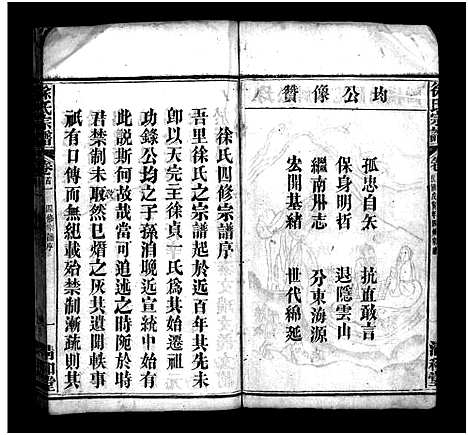 均公像贊
孤忠自矢 抗直敢言
保身明哲 退隱雲山
繼南州志 分東海源
宏開基緒 世代綿延
清和堂
徐氏宗譜
徐氏四修宗譜序
吾里徐氏之宗譜起於近百年其先未
卽以天完王徐貞一氏爲其始遷祖
功錄公均之子孫洎晚近宣統中始有
此說斯何故哉當可追述之時陁於
君禁制未敢然已熸之灰其遺聞軼事
祇有口傳而無紀載始禁制漸疏則其
徐氏宗譜
卷首
四修宗譜序
一
清和堂